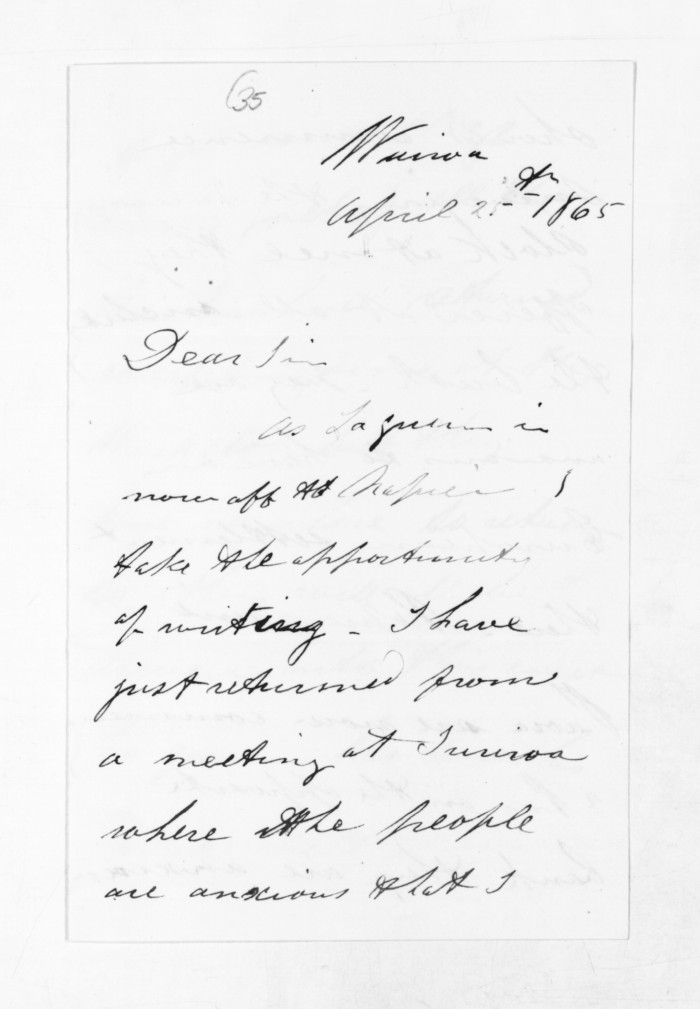 35
Wairoa
April 25th 1865
Dear Sir
as in
now off to Napier I
take the opportunity
of writing - I have
just returned from
a meeting at
where the people
are anxious that I